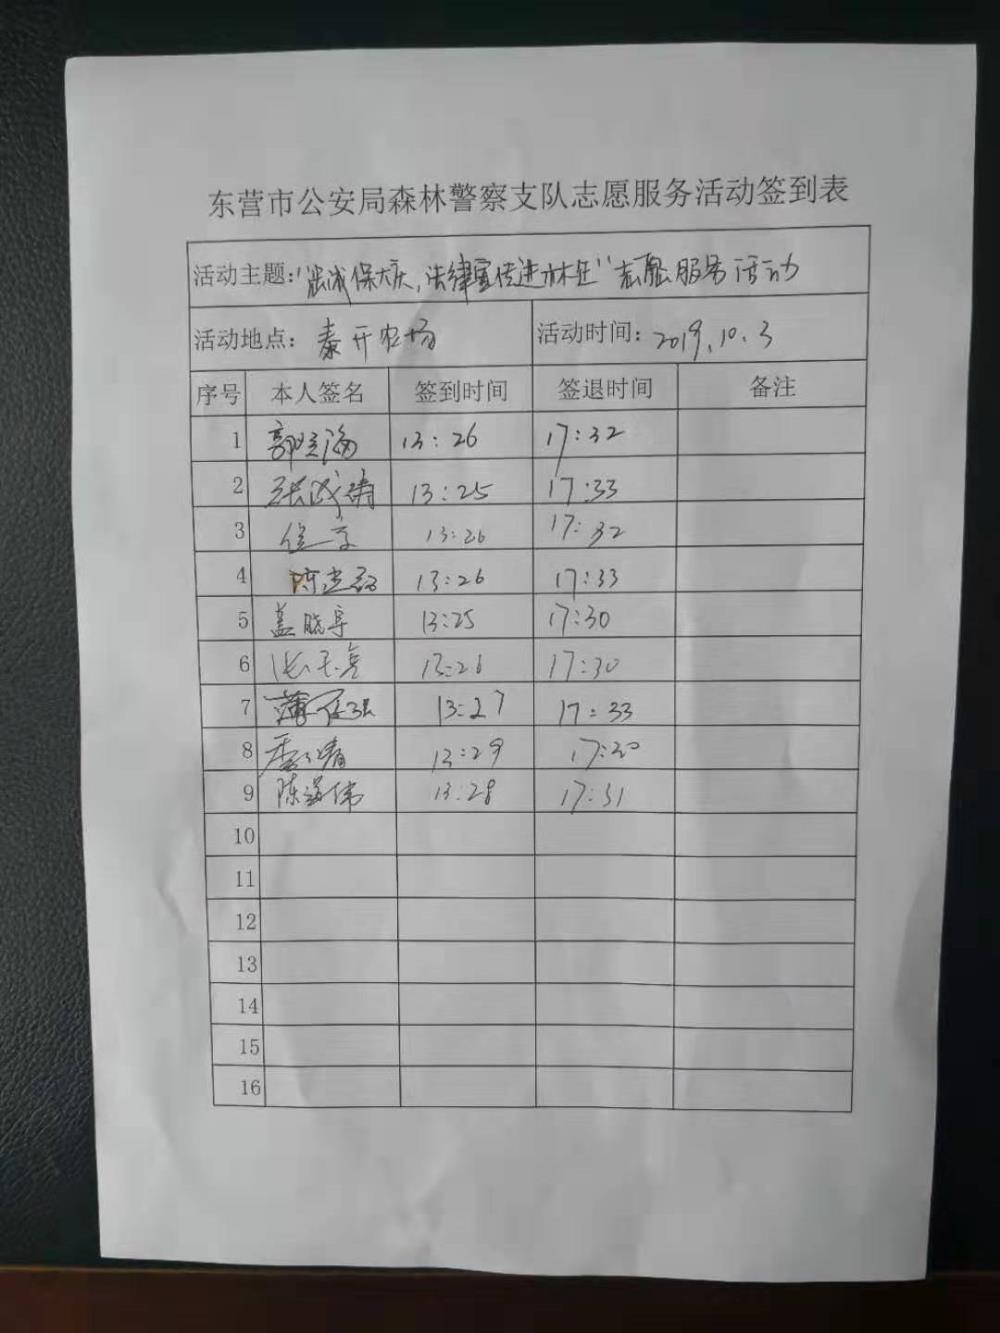 东营市公安局森林警察支队志愿服务活动签到表
活动主题:"忠诚保大庆,法律宣传进林区"志愿服务活动
活动地点: 泰开农场 活动时间: 2019.10.3
序号 本人签名 签到时间 签退时间 备注
1 13:26 17:32
2 张成涛 13:25 17:33
3 13:26 17:32
4 13:26 17:33
5 盖晓宇 13:25 17:30
6 张玉亮 13:26 17:30
7 13:27 17:33
8 13:29 17:30
9 陈海伟 13:28 17:31
10
11
12
13
14
15
16